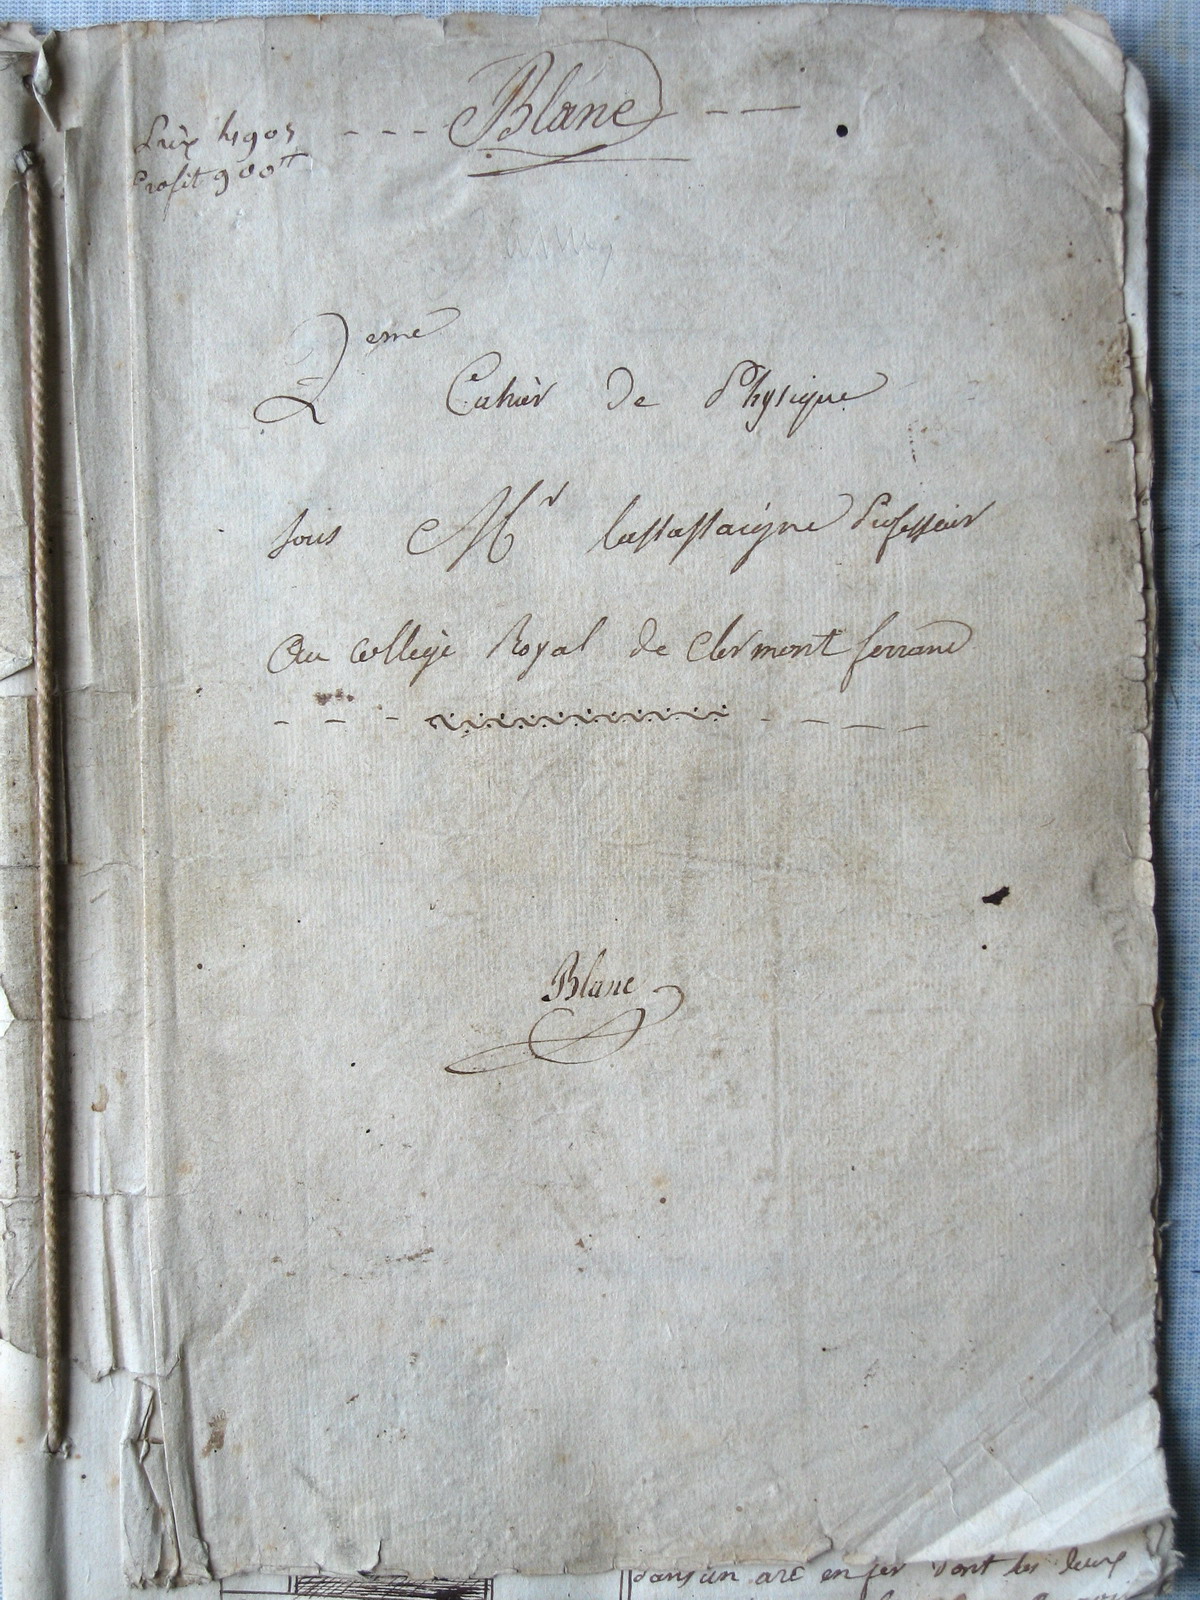 Blanc
Prix 4905
Profit 900
2eme Cahier De Physique
sous Mr lassassaigne Professeur
Au college Royal de clermont ferrand
Blanc
dans un arc en fer dont les deux